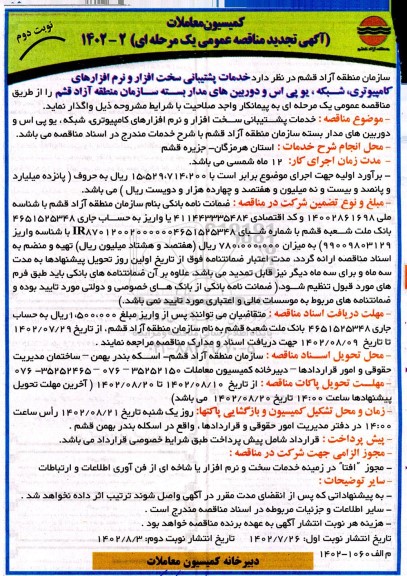 کمیسیون معاملات
(آگهی تجدید مناقصه عمومی یک مرحله ای) ۲ - ۱۴۰۲
نوبت دوم
سازمان منطقه آزاد قشم در نظر دارد خدمات پشتیبانی سخت افزار و نرم افزارهای
کامپیوتری، شبکه، یو پی اس و دوربین های مدار بسته سازمان منطقه آزاد قشم را از طریق
مناقصه عمومی یک مرحله ای به پیمانکار واجد صلاحیت با شرایط مشروحه ذیل واگذار نماید.
- موضوع مناقصه: خدمات پشتیبانی سخت افزار و نرم افزارهای کامپیوتری، شبکه، یو پی اس و
دوربین های مدار بسته سازمان منطقه آزاد قشم با شرح خدمات مندرج در اسناد مناقصه می باشد.
- محل انجام شرح خدمات: استان هرمزگان- جزیره قشم
- مدت زمان اجرای کار: ۱۲ ماه شمسی می باشد.
- برآورد اولیه جهت اجرای موضوع برابر است با ۱۵.۵۲۹.۷۱۴.۲۰۰ ریال به حروف (پانزده میلیارد
و پانصد و بیست و نه میلیون و هفتصد و چهارده هزار و دویست ریال) می باشد.
- مبلغ و نوع تضمین شرکت در مناقصه: ضمانت نامه بانکی بنام سازمان منطقه آزاد قشم با شناسه
ملی ۱۴۰۰۲۸۶۱۶۹۸ و کد اقتصادی ۴۱۱۱۴۳۳۳۵۴۸۴ یا واریز به حساب جاری ۴۶۵۱۵۲۵۳۴۸
بانک ملت شعبه قشم با شماره شبای IR۸۷۰۱۲۰۰۲۰۰۰۰۰۰۴۶۵۱۵۲۵۳۴۸ با شناسه واریز
(۹۹۰۰۹۸۰۳۱۲۹) به میزان ۷۸۰.۰۰۰.۰۰۰ ریال (هفتصد و هشتاد میلیون ریال) تهیه و منضم به
اسناد مناقصه ارائه گردد. مدت اعتبار ضمانتنامه فوق از تاریخ اولین روز تحویل پیشنهادها به مدت
سه ماه و برای سه ماه دیگر نیز قابل تمدید می باشد. علاوه بر آن ضمانتنامه های بانکی باید طبق فرم
های مورد قبول تنظیم شود. (ضمانت نامه بانکی از بانک های خصوصی و دولتی مورد تایید بوده و
ضمانتنامه های مربوط به موسسات مالی و اعتباری مورد تایید نمی باشد.)
- مهلت دریافت اسناد مناقصه: متقاضیان می توانند پس از واریز مبلغ ۱.۵۰۰.۰۰۰ ریال به حساب
جاری ۴۶۵۱۵۲۵۳۴۸ بانک ملت شعبه قشم به نام سازمان منطقه آزاد قشم، از تاریخ ۱۴۰۲/۰۷/۲۹
تا تاریخ ۱۴۰۲/۰۸/۰۹ جهت دریافت اسناد و مدارک مناقصه مراجعه نمایند.
- محل تحویل اسناد مناقصه: سازمان منطقه آزاد قشم- اسکله بندر بهمن – ساختمان مدیریت
حقوقی و امور قراردادها – دبیرخانه کمیسیون معاملات ۳۵۲۵۲۱۵۰ – ۰۷۶ – ۳۵۲۵۲۴۶۵ – ۰۷۶
- مهلت تحویل پاکات مناقصه: از تاریخ ۱۴۰۲/۰۸/۱۰ تا ۱۴۰۲/۰۸/۲۰ (آخرین مهلت تحویل
پیشنهادها ساعت ۱۴:۰۰ تاریخ ۱۴۰۲/۰۸/۲۰ می باشد)
- زمان و محل تشکیل کمیسیون و بازگشایی پاکتها: روز یک شنبه تاریخ ۱۴۰۲/۰۸/۲۱ رأس ساعت
۱۴:۰۰ در دفتر مدیریت امور حقوقی و قراردادها، واقع در اسکله بندر بهمن قشم.
- پیش پرداخت: قرارداد شامل پیش پرداخت طبق شرایط خصوصی قرارداد می باشد.
- مجوز الزامی جهت شرکت در مناقصه:
- مجوز "افتا" در زمینه خدمات سخت و نرم افزار یا شاخه ای از فن آوری اطلاعات و ارتباطات
- سایر توضیحات:
- به پیشنهاداتی که پس از انقضای مدت مقرر در آگهی واصل شوند ترتیب اثر داده نخواهد شد.
- سایر اطلاعات و جزئیات مربوطه در اسناد مناقصه مندرج است.
- هزینه هر نوبت انتشار آگهی به عهده برنده مناقصه خواهد بود.
تاریخ انتشار نوبت اول: ۱۴۰۲/۷/۲۶ تاریخ انتشار نوبت دوم: ۱۴۰۲/۸/۳
م الف ۱۰۶۰-۱۴۰۲
دبیرخانه کمیسیون معاملات